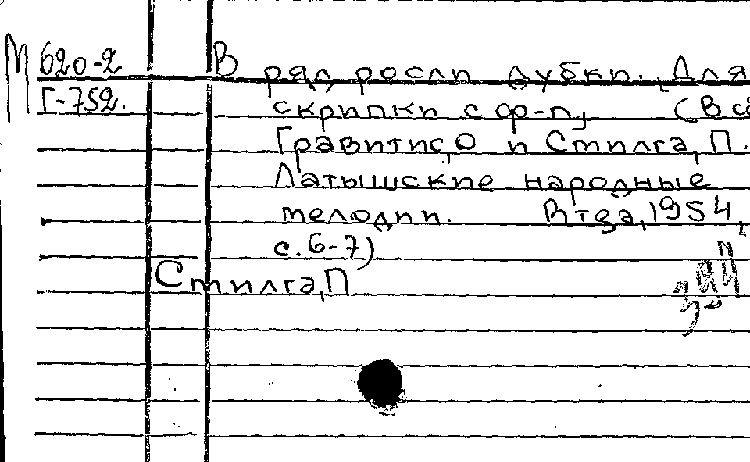 М 620-2 В ряд росли дубки. [Для
Г-752. скрипки с ф-п] (В сб
Гравитис, О и Стилга, П.
Латышские народные
мелодии. Рига, 1954,
с. 6-7)
Стилга, П